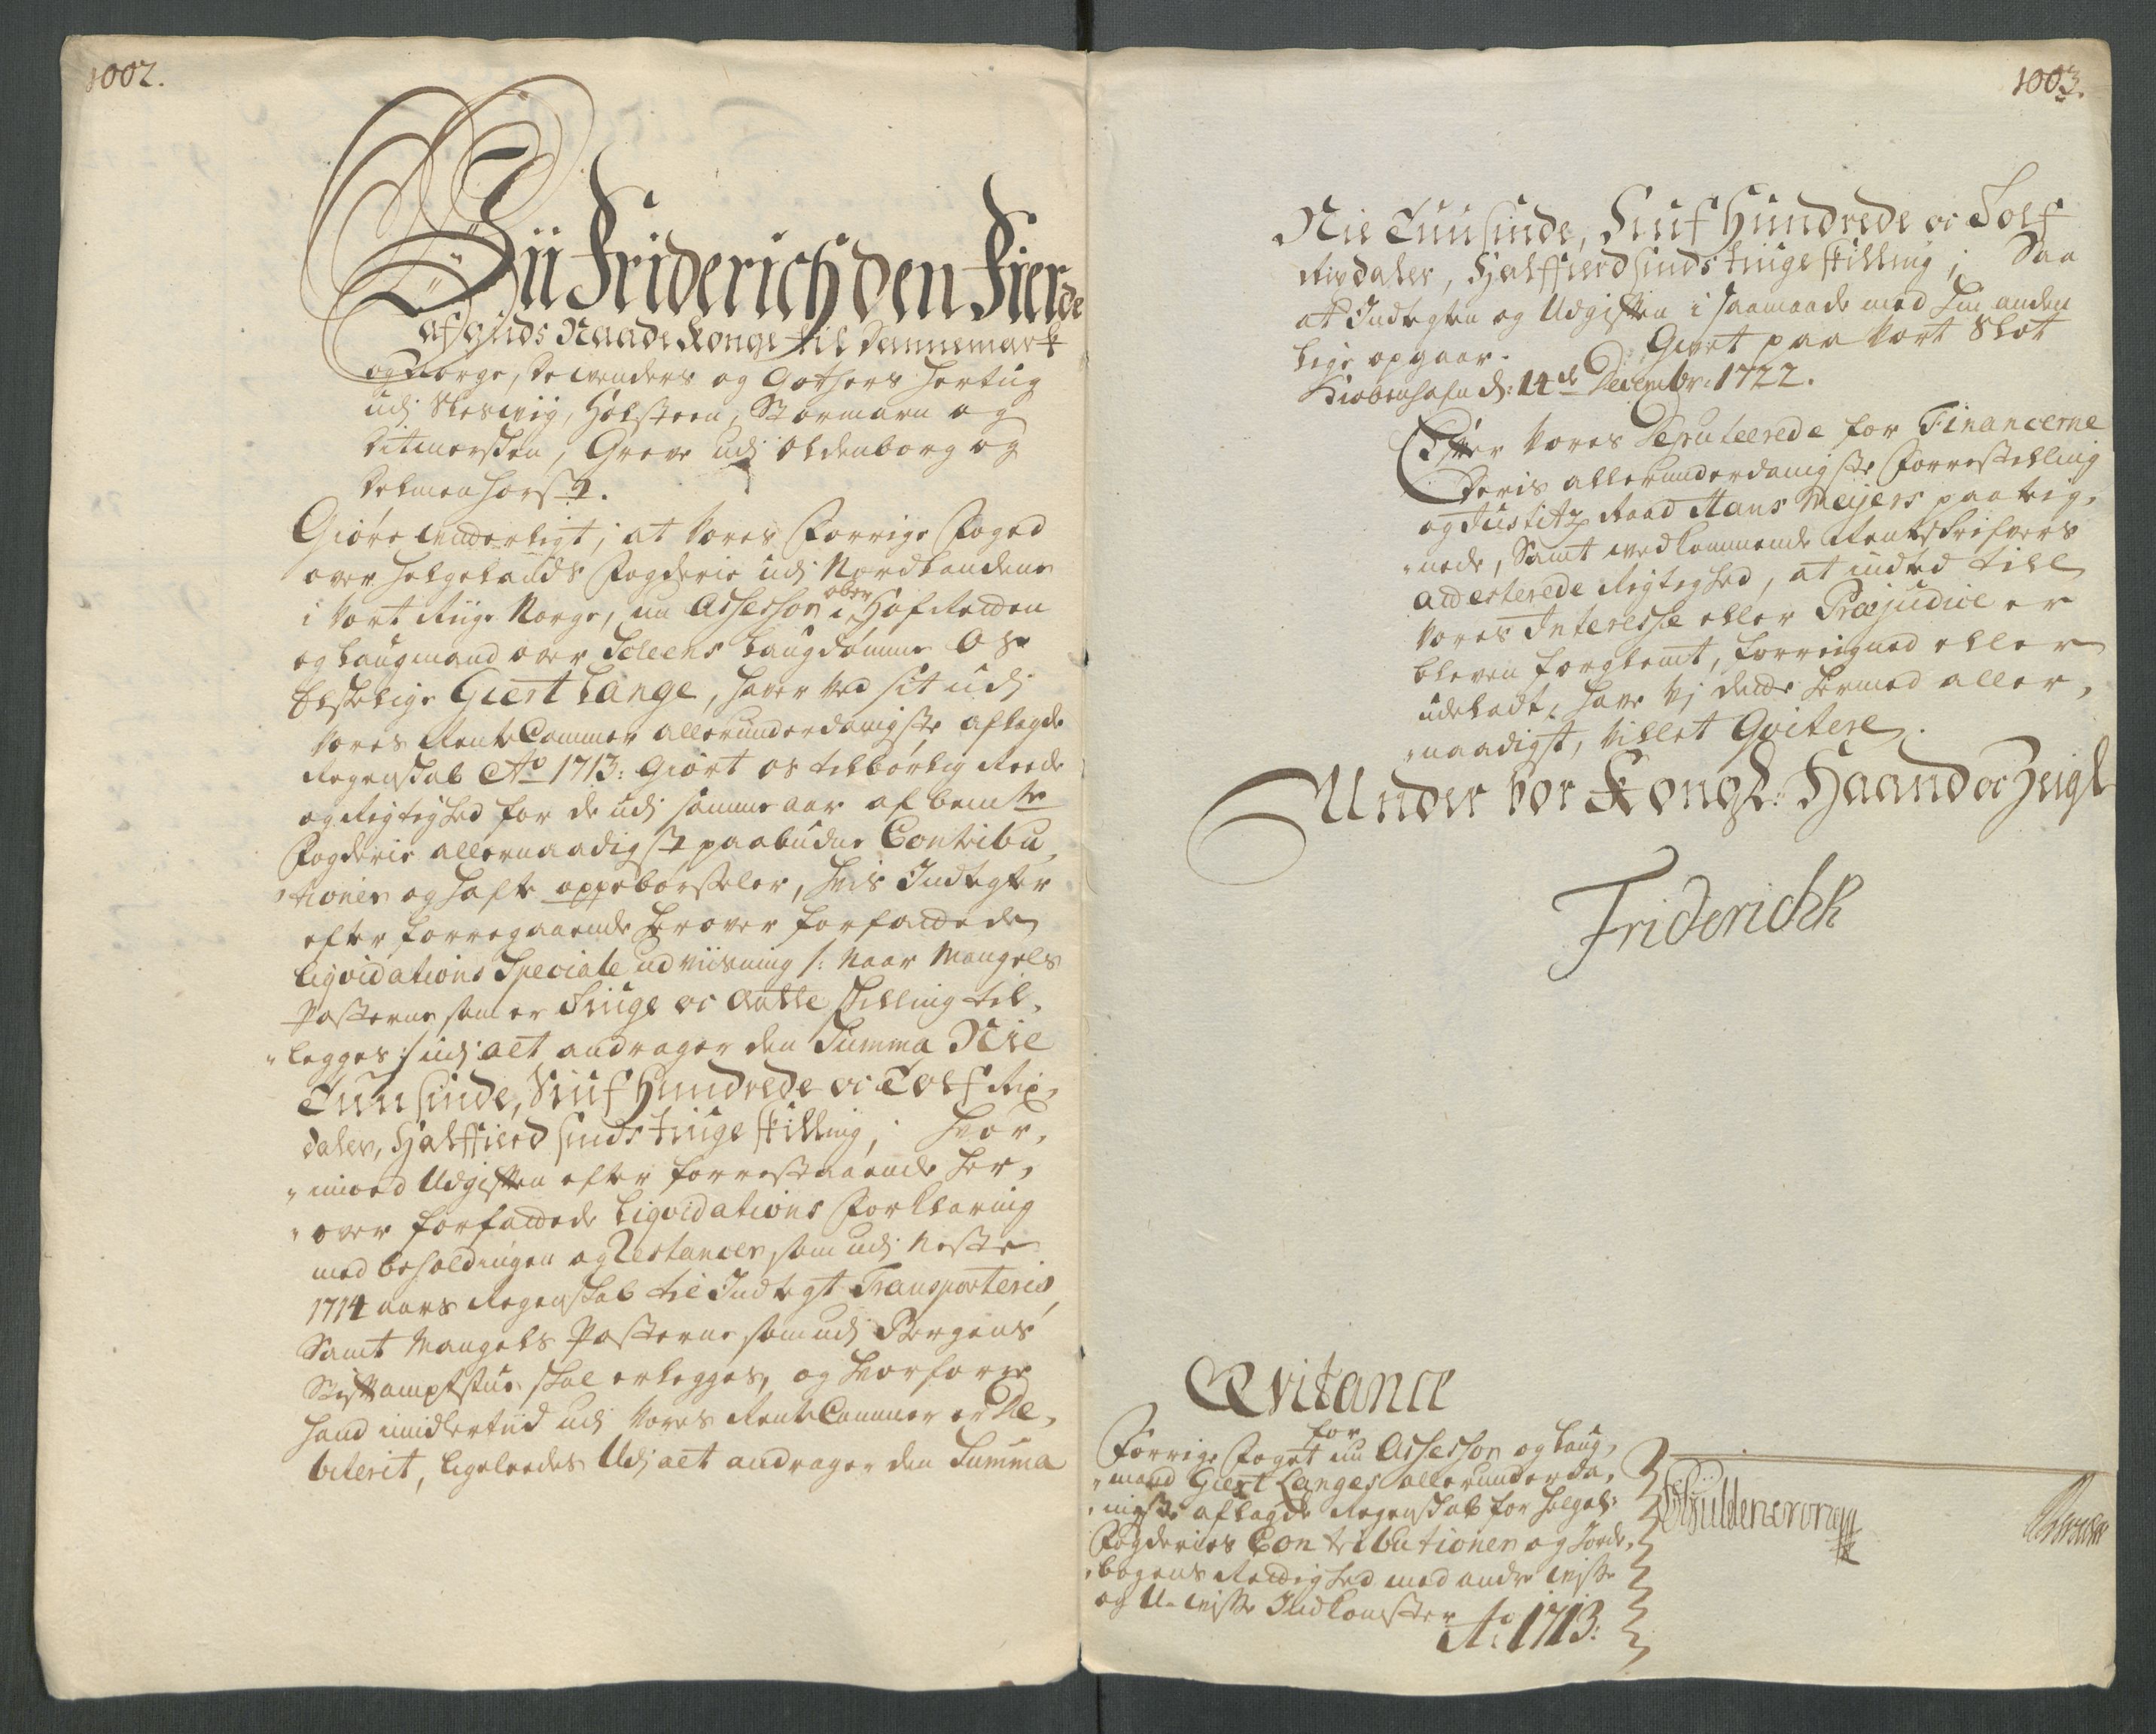 1002.
Vii Friderich den Fierde
af Guds Naade Konge til Dannemark
og Norge, de Wenders og Gothers Hertug
udj Slesvig, Holsteen, Stormarn og
Ditmersken, Greve udj Oldenborg og
Delmenhorst.
Giøre witterligt, at Vores Forrige Foged
over Helgelands Fogderie udj Nordlandene
i Vort Riige Norge, nu Assessor i ober Hof Retten
og Laugmand over Scheens Laugdømme Os
Elskelige Giert Lange, haver ved sit udj
Vores RenteCammer allerunderdanigste aflagde
Regenskab Ao 1713: giort os tilbørlig Reede
og Rigtighed for de udj samme aar af bemte
Fogderie allernaadigst paabudne Contribu,
"tioner og hafte oppebørseler, hvis Indtegter
efter forregaaende herover forfattede
Liqvidations Speciale udviisning /: naar Mangels
Posterne som er Tiuge oc Aatte skilling til,
"legges :/ udj alt andrager den Summa Nie
Tuusinde, Siuf Hundrede oc Tolf Rix,
daler, Halffierdsindstiuge skilling; hvor,
"imod Udgiften efter forrestaaende her,
"over forfattede Liqvidations Forklaring
med beholdingen og Restancer, som udj neste
1714 aars Regenskab til Indtegt Transporteris,
Samt Mangels Posterne som udj Bergens
Stiftamptstue skal erlegges, og hvorfore
hand imidlertiid udj Vores RenteCammer er De,
biterit, ligeleedes Udj alt andrager den Summa
1003.
Nie Tuusinde, Siuf Hundrede oc Tolf
Rixdaler, Halffierdsindstiuge skilling; Saa
at Indtegten og Udgiften i saamaade mod hin anden
lige opgaar. Givet paa Vort Slot
Kiøbenhafn d: 14de Decembr: 1722.
Efter Vores Deputeerede for Financerne
Deris allerunderdanigste Forrestilling
og Justitz Raad Hans Meijers paateig,
"nede, Samt vedkommende Renteskrifvers
attesterede Rigtighed, at intet till
Vores Interesse eller Præjudice er
bleven forglemt, forreignet eller
udeladt, have Vj dette hermed aller,
"naadigst, villet Qvitere.
Under vor Kongl: Haand oc Zeigl
Friderich R
Qvitance
for
Forrige Foget nu Assessor og Laug,
"mand Giert Langes allerunderda,
"nigste aflagde Regenskab for Helgel:
Fogderies Contributioner og Jorde,
"bogens Rettighed med andre Visse
og U-visse Indkomster
Ao 1713: